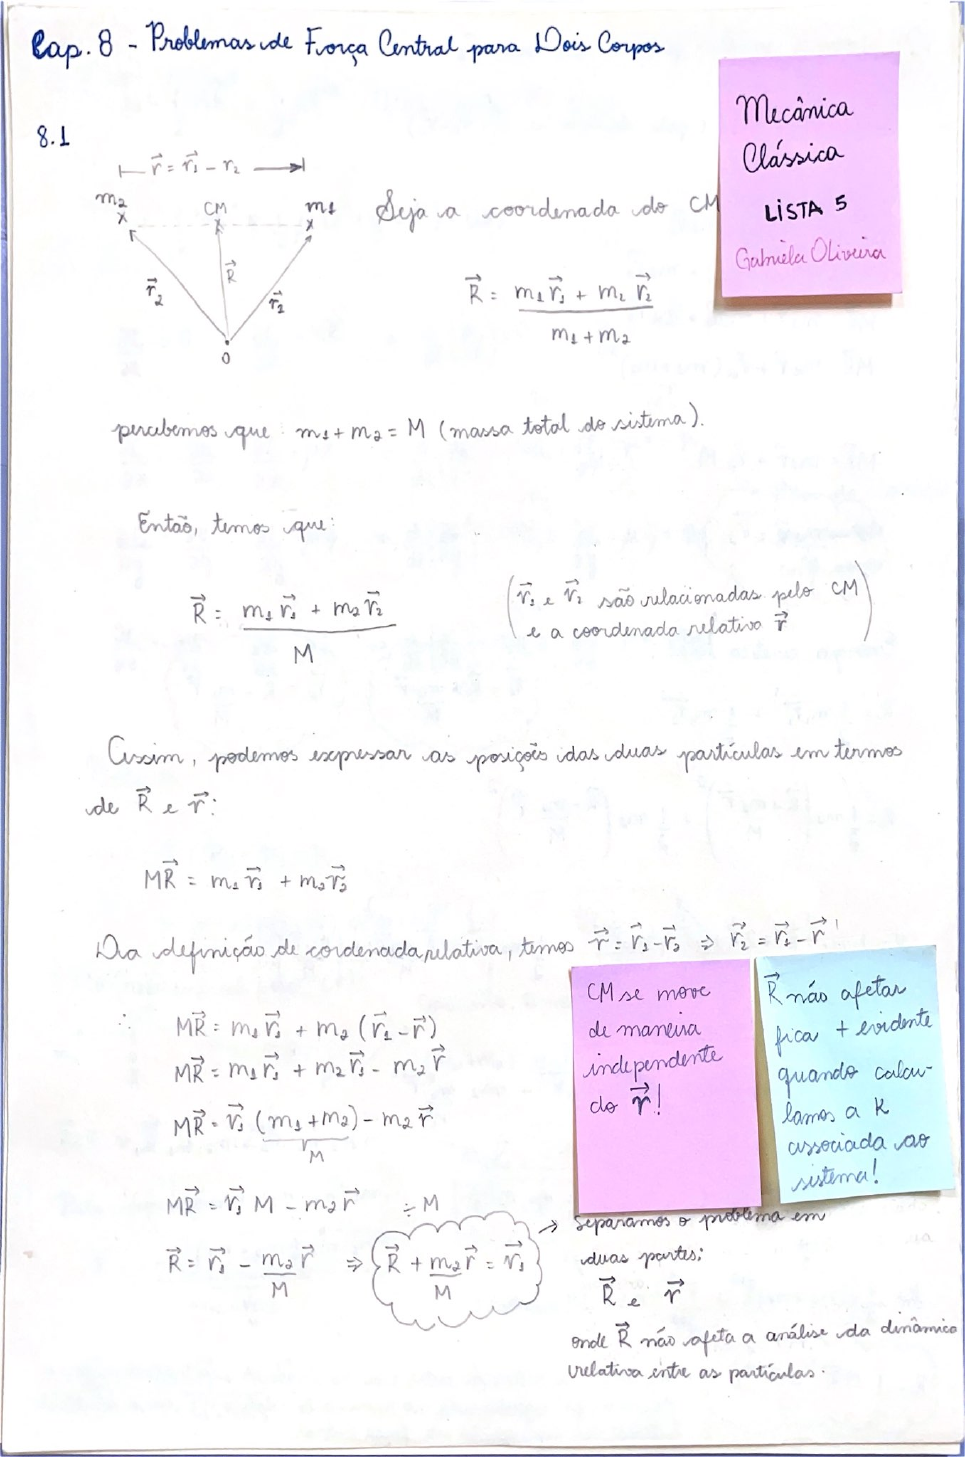 Cap. 8 - Problemas de Força Central para Dois Corpos
Mecânica
Clássica
LISTA 5
Gabriela Oliveira
8.1
r⃗ = r⃗₁ - r₂
m₂ CM m₁
r⃗₂ R⃗ r⃗₂
O
Seja a coordenada do CM
R⃗ = (m₁r⃗₁ + m₂r⃗₂) / (m₁ + m₂)
percebemos que m₁ + m₂ = M (massa total do sistema).
Então, temos que:
R⃗ = (m₁r⃗₁ + m₂r⃗₂) / M
(r⃗₁ e r⃗₂ são relacionadas pelo CM
e a coordenada relativa r⃗)
Assim, podemos expressar as posições das duas partículas em termos
de R⃗ e r⃗:
MR⃗ = m₁r⃗₁ + m₂r⃗₂
Da definição de cordenada relativa, temos r⃗ = r⃗₁ - r⃗₂ ⇒ r⃗₂ = r⃗₁ - r⃗
∴ MR⃗ = m₁r⃗₁ + m₂(r⃗₁ - r⃗)
MR⃗ = m₁r⃗₁ + m₂r⃗₁ - m₂r⃗
MR⃗ = r⃗₁(m₁ + m₂) - m₂r⃗
M
MR⃗ = r⃗₁M - m₂r⃗ ÷M
R⃗ = r⃗₁ - m₂r⃗/M ⇒ R⃗ + m₂r⃗/M = r⃗₁
CM se move
de maneira
independente
do r⃗!
R⃗ não afetar
fica + evidente
quando calcu-
lamos a K
associada ao
sistema!
→ separamos o problema em
duas partes:
R⃗ e r⃗
onde R⃗ não afeta a análise da dinâmica
relativa entre as partículas.